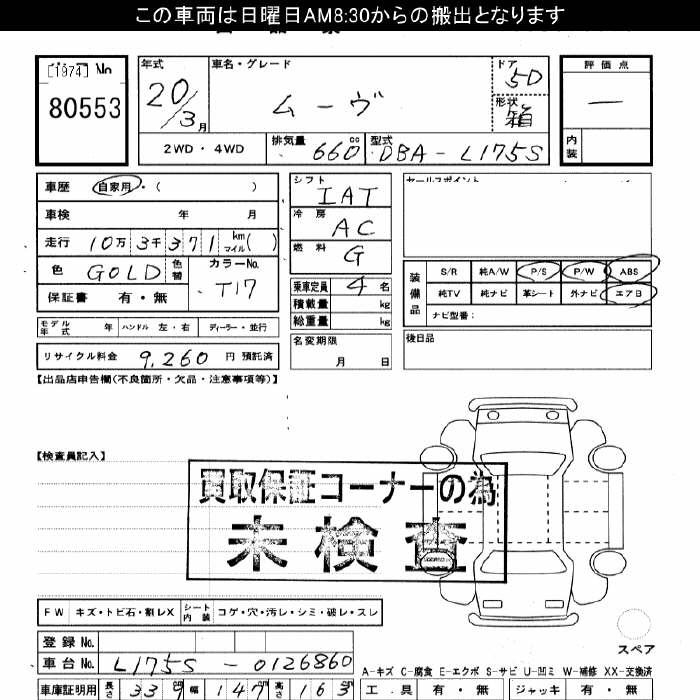 この車両は日曜日AM8:30からの搬出となります
[1974] No
80553
年式 車名・グレード ドア 評価点
20/3月 ムーヴ 5D
形状 箱
—
2WD・4WD 排気量 660cc 型式 DBA-L175S 内装
車歴 自家用・( )
車検 年 月
走行 10万3千371 km マイル( )
色 GOLD 色替 カラーNo. T17
保証書 有・無
シフト IAT
冷房 AC
燃料 G
乗車定員 4名
積載量 kg
総重量 kg
セールスポイント
装備品 S/R 純A/W P/S P/W ABS
純TV 純ナビ 革シート 外ナビ エアB
ナビ型番:
モデル年式 年 ハンドル 左・右 ディーラー・並行
名変期限 月 日
後日品
リサイクル料金 9,260 円 預託済
【出品店申告欄(不良箇所・欠品・注意事項等)】
【検査員記入】
買取保証コーナーの為
未検査
FW キズ・トビ石・割レX シート内装 コゲ・穴・汚レ・シミ・破レ・スレ
スペア
登録No.
車台No. L175S-0126860
A-キズ C-腐食 E-エクボ S-サビ U-凹ミ W-補修 XX-交換済
車庫証明用 長さ 339 幅 147 高さ 163
工具 有・無 ジャッキ 有・無